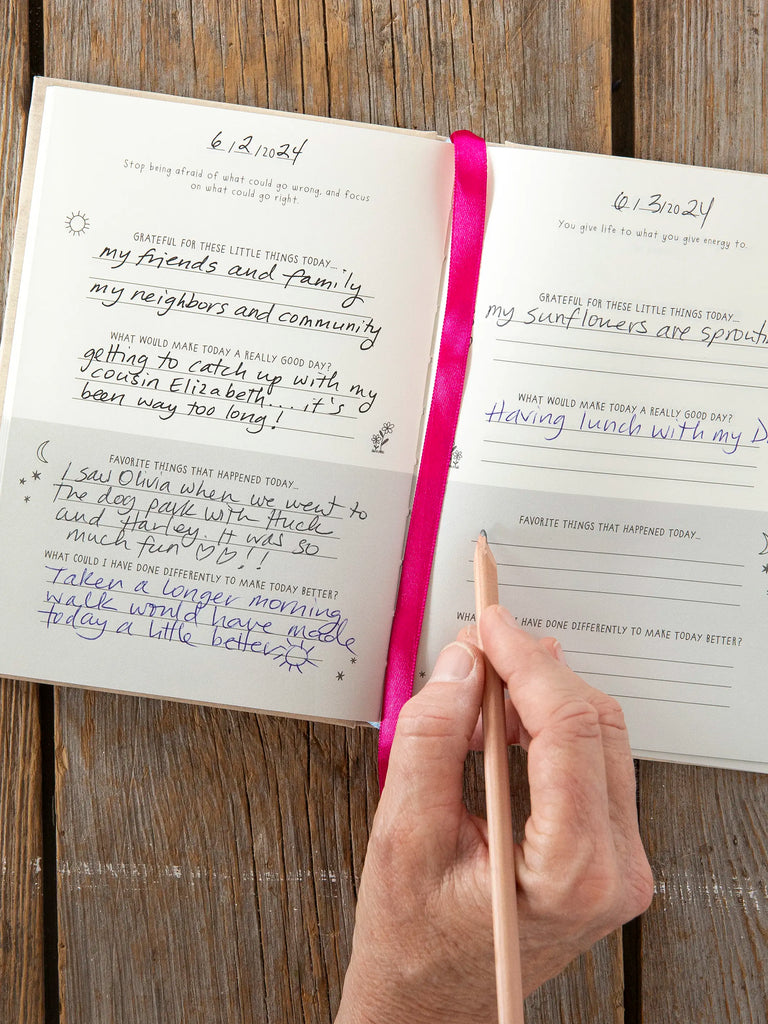 6/2/2024
Stop being afraid of what could go wrong, and focus
on what could go right.
GRATEFUL FOR THESE LITTLE THINGS TODAY...
my friends and family
my neighbors and community
WHAT WOULD MAKE TODAY A REALLY GOOD DAY?
getting to catch up with my
cousin Elizabeth.... it's
been way too long!
FAVORITE THINGS THAT HAPPENED TODAY...
I saw Olivia when we went to
the dog park with Huck
and Harley. It was so
much fun ♡♡!!
WHAT COULD I HAVE DONE DIFFERENTLY TO MAKE TODAY BETTER?
Taken a longer morning
walk would have made
today a little better
6/3/2024
You give life to what you give energy to.
GRATEFUL FOR THESE LITTLE THINGS TODAY...
my sunflowers are
WHAT WOULD MAKE TODAY A REALLY GOOD DAY?
Having lunch with my
FAVORITE THINGS THAT HAPPENED TODAY...
HAVE DONE DIFFERENTLY TO MAKE TODAY BETTER?